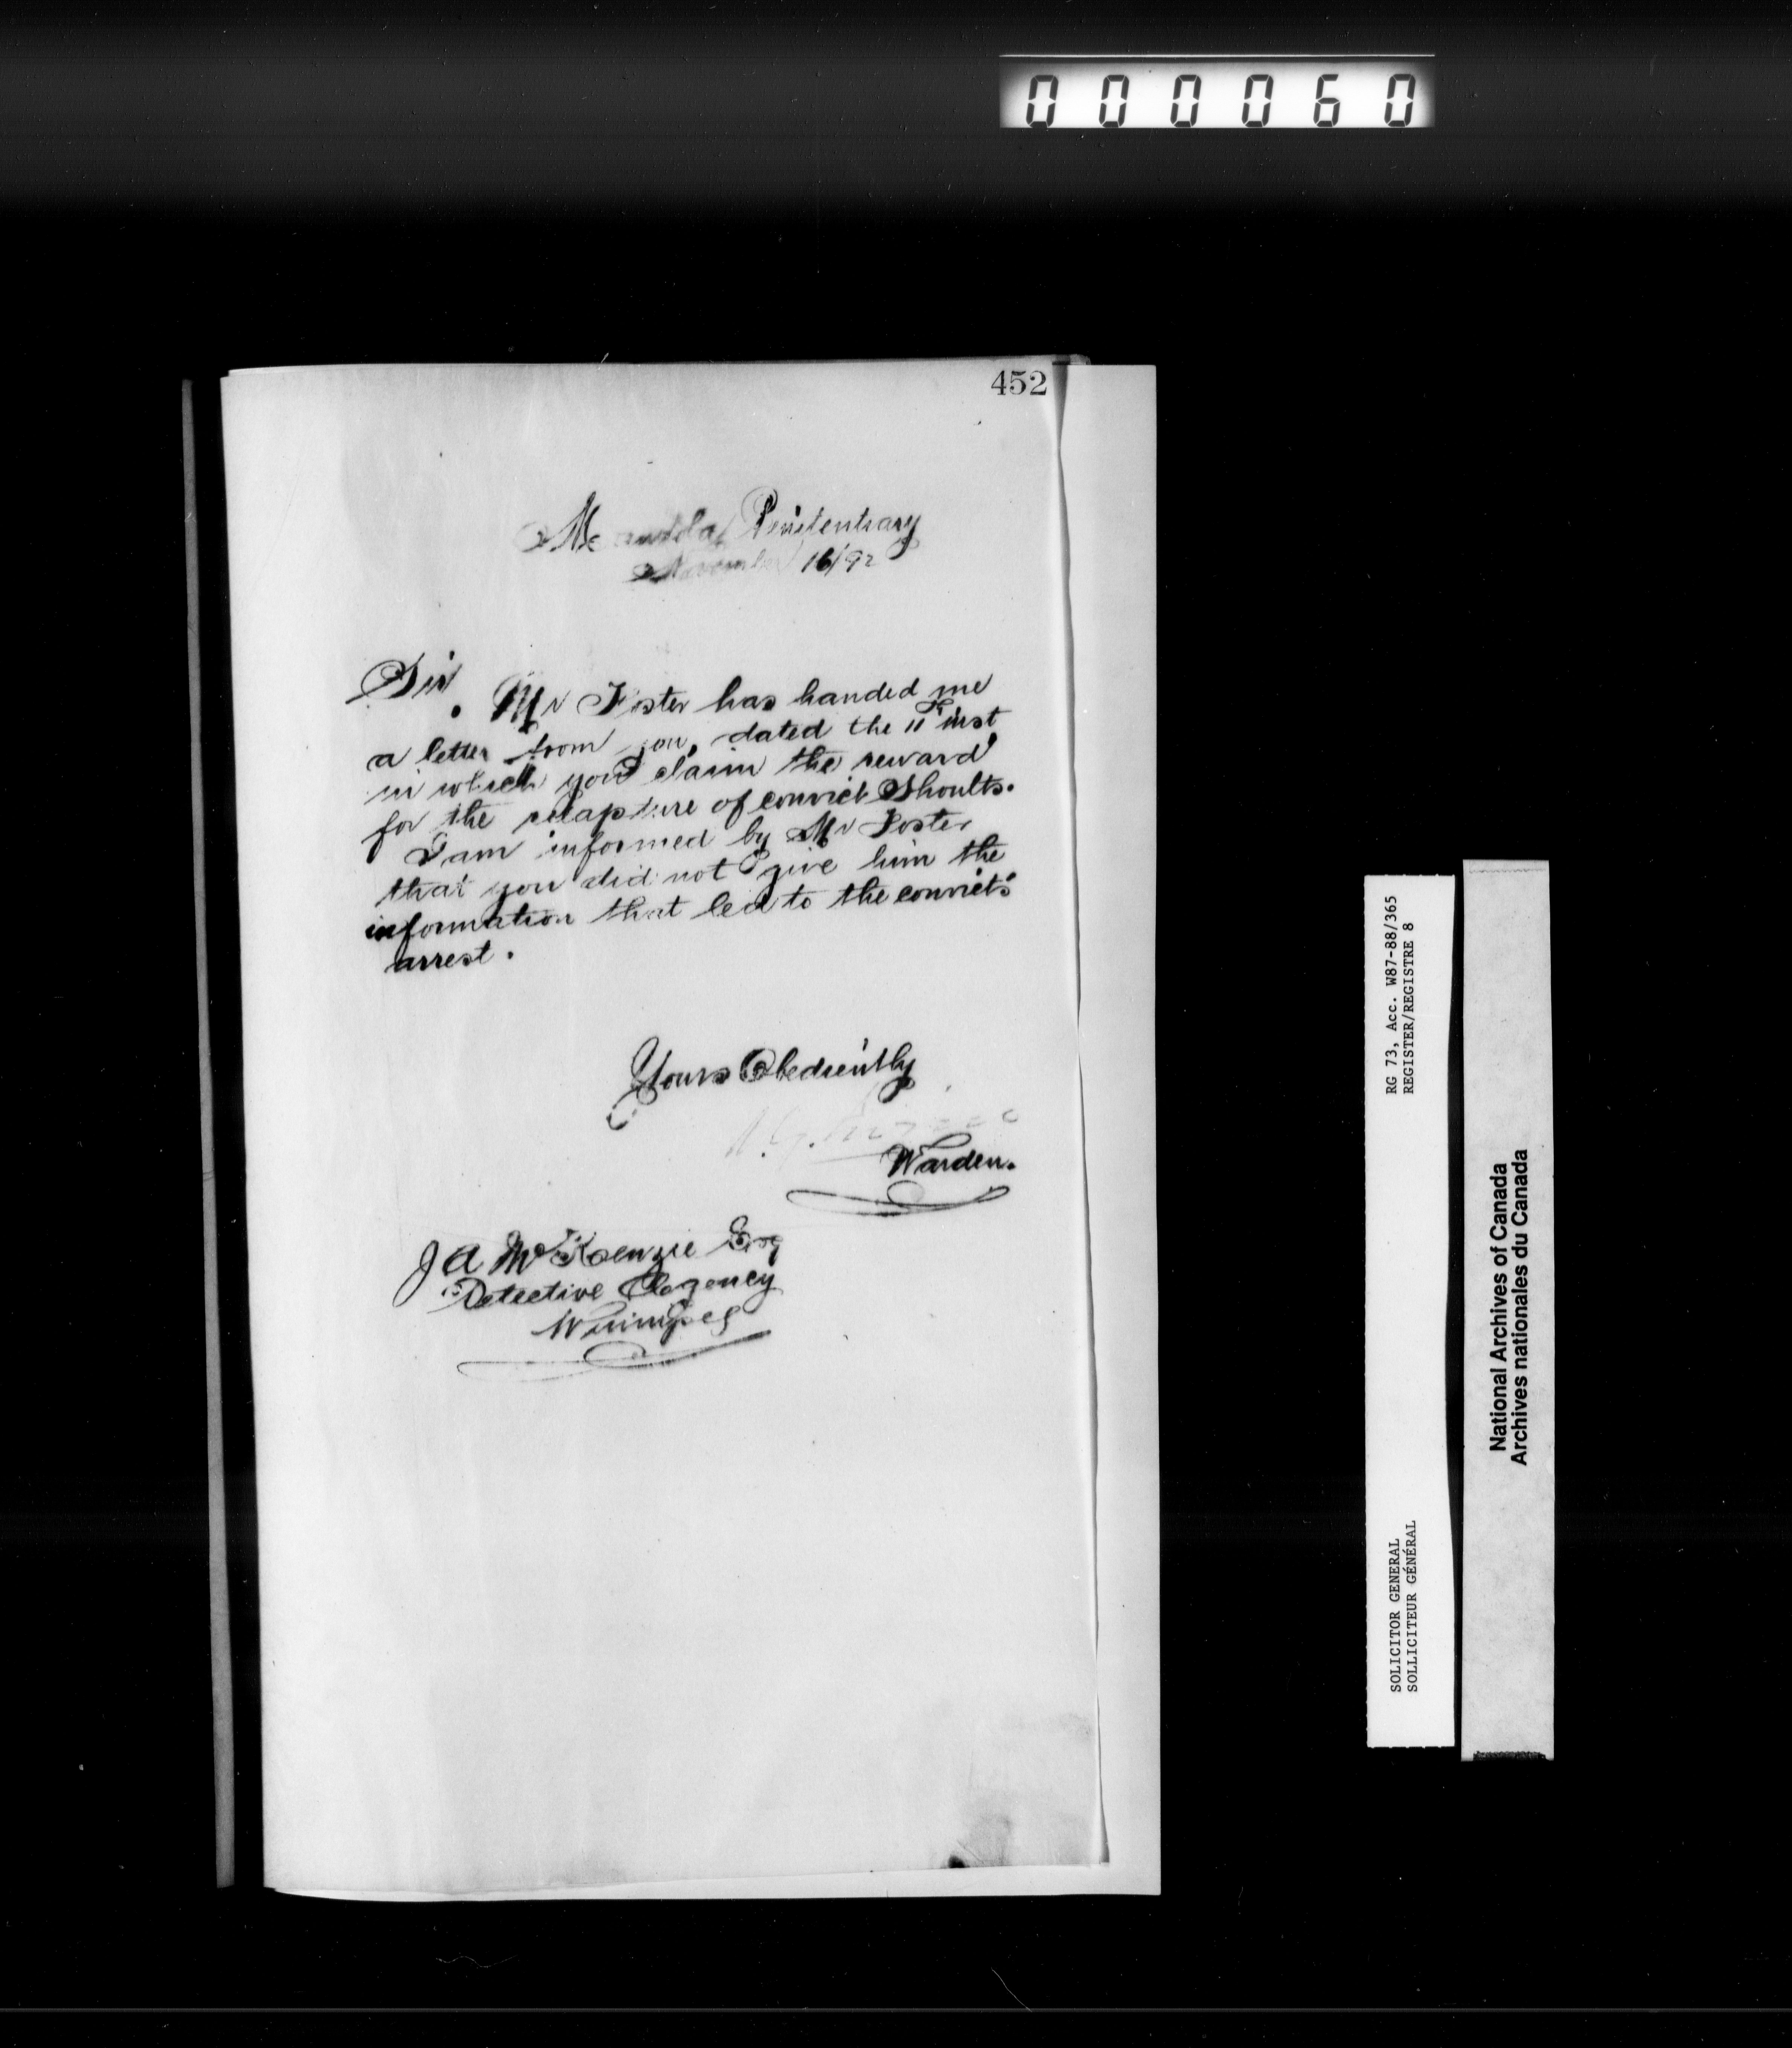 000060
452
Manitoba Penitentiary
November 16/92
Sir
Mr Foster has handed me
a letter from you, dated the 11th inst
in which you claim the reward
for the recapture of convict Shoults.
I am informed by Mr Foster
that you did not give him the
information that led to the convict's
arrest.
Yours Obediently
Warden.
J A McKenzie Esq
Detective Agency
Winnipeg
RG 73, Acc. W87-88/365
REGISTER/REGISTRE 8
SOLICITOR GENERAL
SOLLICITEUR GÉNÉRAL
National Archives of Canada
Archives nationales du Canada